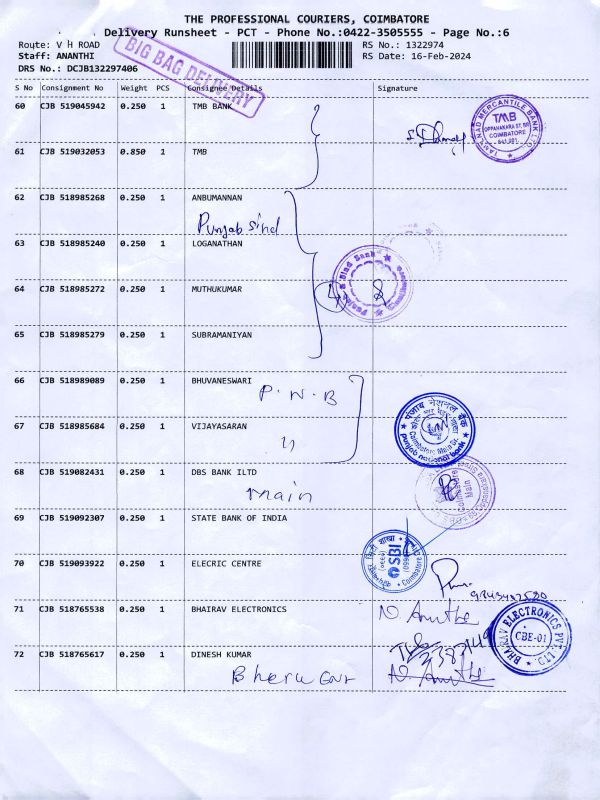 THE PROFESSIONAL COURIERS, COIMBATORE
Delivery Runsheet - PCT - Phone No.:0422-3505555 - Page No.:6
Route: V H ROAD RS No.: 1322974
Staff: ANANTHI RS Date: 16-Feb-2024
DRS No.: DCJB132297406
BIG BAG DELIVERY
S No Consignment No Weight PCS Consignee Details Signature
60 CJB 519045942 0.250 1 TMB BANK
TAMILNAD MERCANTILE BANK LTD
TMB
OPPANAKARA ST. BR
COIMBATORE
641 001
61 CJB 519032053 0.850 1 TMB
62 CJB 518985268 0.250 1 ANBUMANNAN
Punjab Sind
63 CJB 518985240 0.250 1 LOGANATHAN
Punjab & Sind Bank
64 CJB 518985272 0.250 1 MUTHUKUMAR
4
65 CJB 518985279 0.250 1 SUBRAMANIYAN
66 CJB 518989089 0.250 1 BHUVANESWARI
P.N.B
67 CJB 518985684 0.250 1 VIJAYASARAN
पंजाब नैशनल बैंक
Coimbatore Main Br.
punjab national bank
68 CJB 519082431 0.250 1 DBS BANK ILTD
Main
69 CJB 519092307 0.250 1 STATE BANK OF INDIA
SBI
Coimbatore
70 CJB 519093922 0.250 1 ELECRIC CENTRE
71 CJB 518765538 0.250 1 BHAIRAV ELECTRONICS
BHAIRAV ELECTRONICS PVT.
CBE-01
72 CJB 518765617 0.250 1 DINESH KUMAR